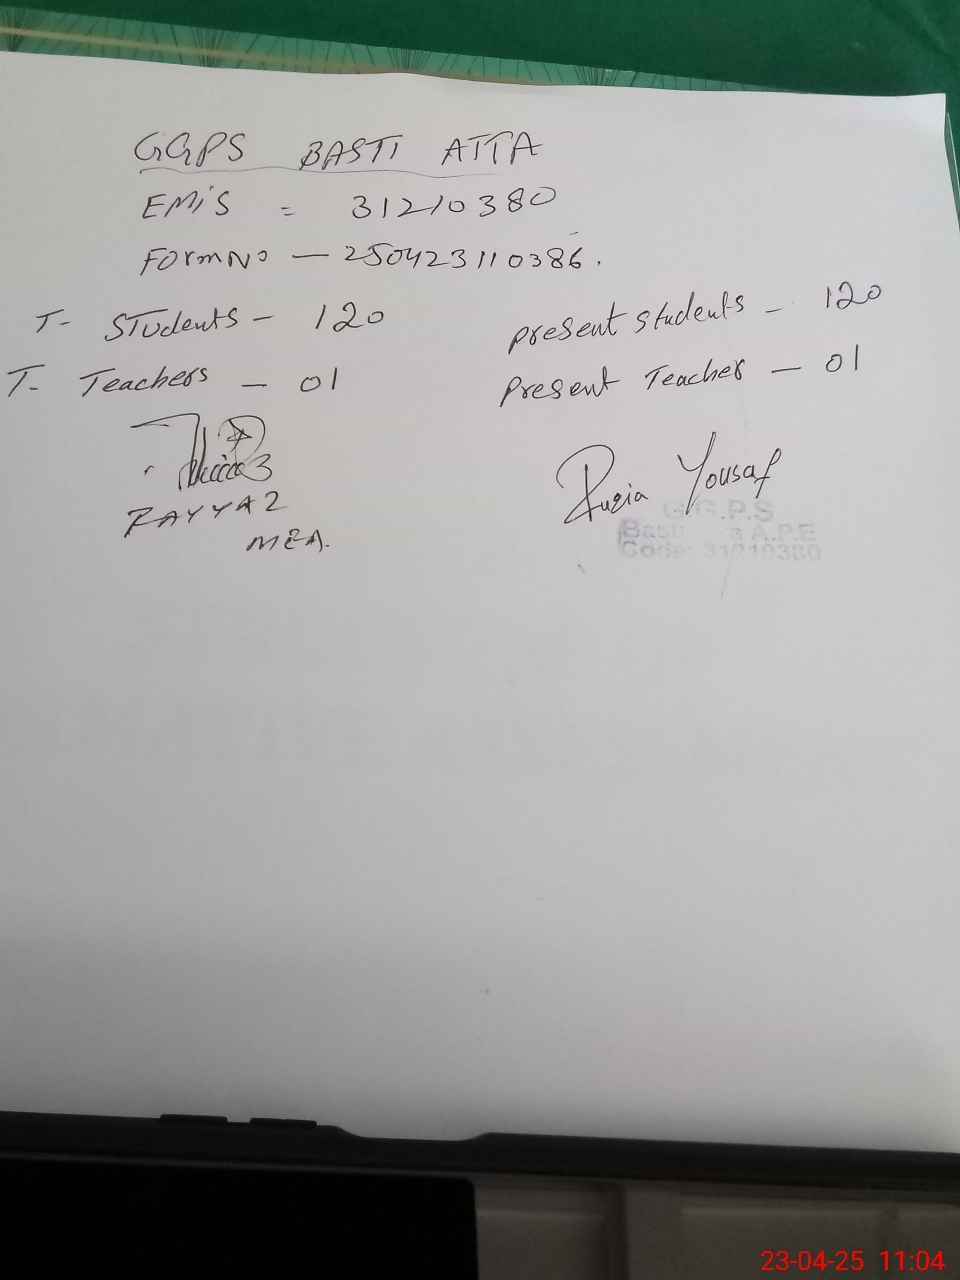 GGPS BASTI ATTA
EMiS = 31210380
FormNo — 250423110386.
T- STudents - 120
present students - 120
T- Teachers - 01
present Teacher - 01
MEA.
Yousaf
G.G.P.S
A.P.E
Code: 31210380
23-04-25 11:04